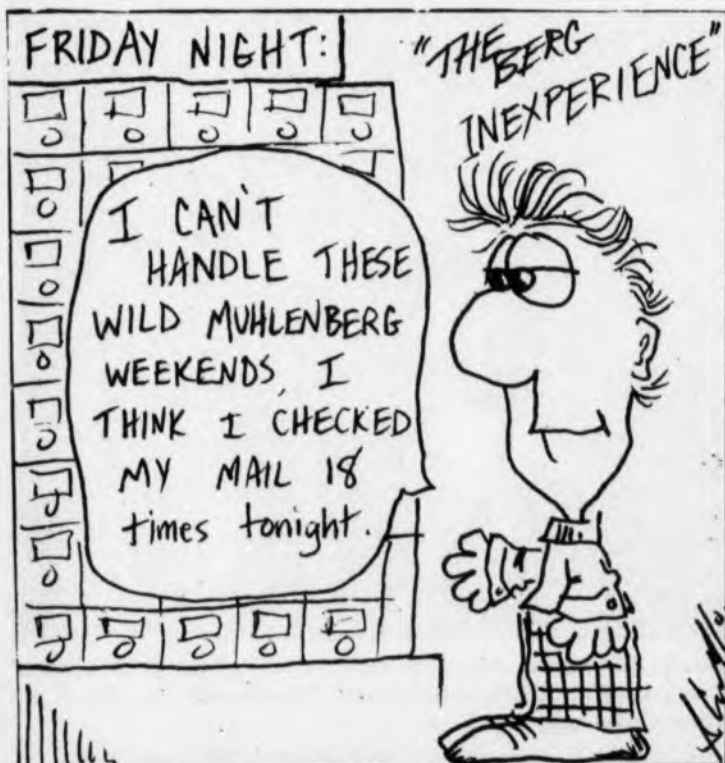 FRIDAY NIGHT:
"THE BERG
INEXPERIENCE"
I CAN'T
HANDLE THESE
WILD MUHLENBERG
WEEKENDS, I
THINK I CHECKED
MY MAIL 18
times tonight.